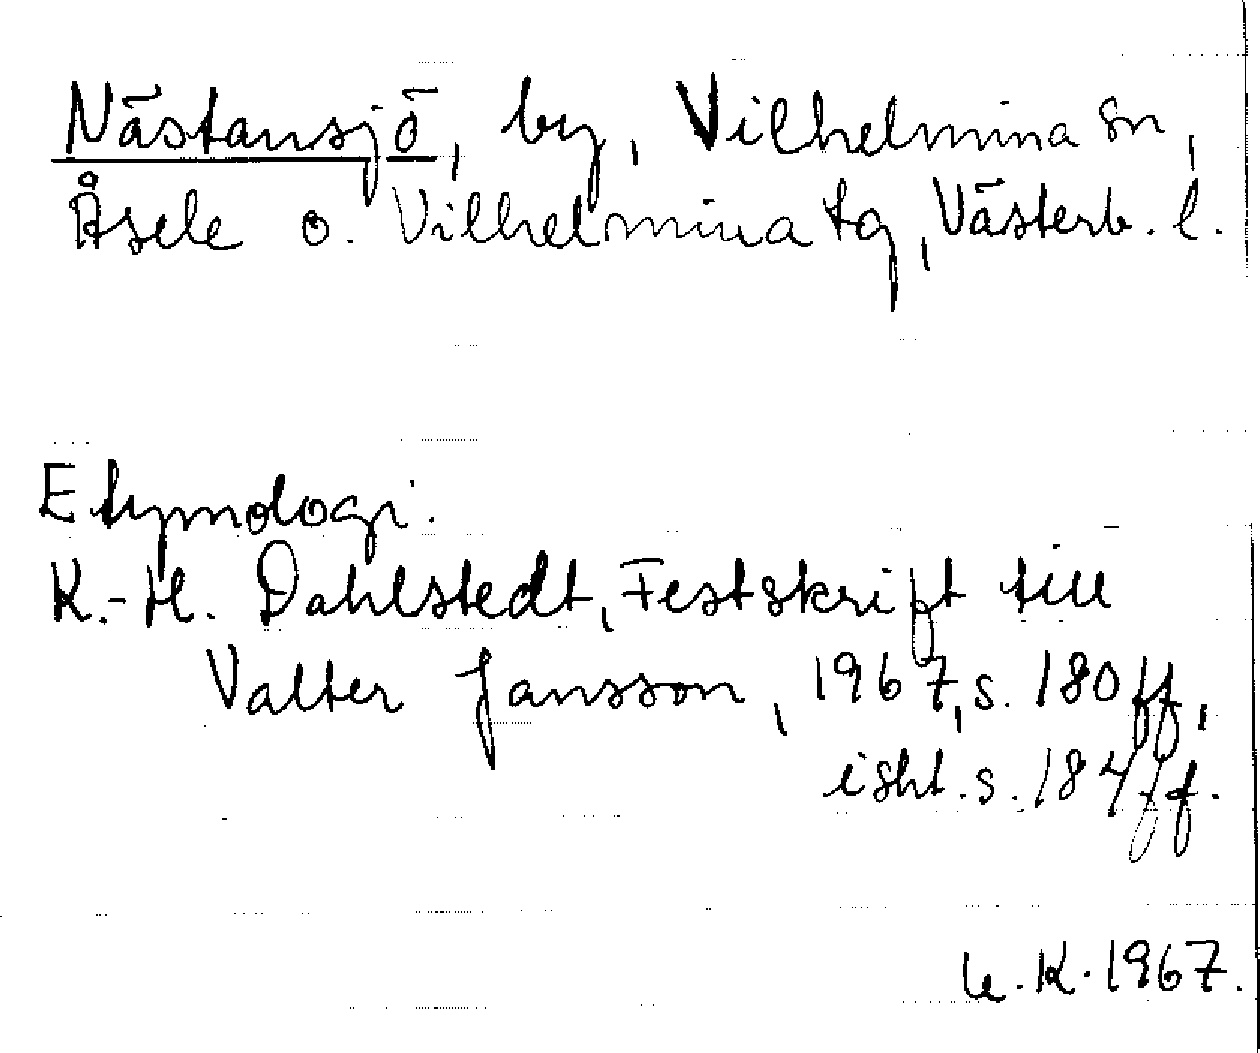 Nästansjö, by, Vilhelmina sn,
Åsele o. Vilhelmina tg, Västerb. l.
Etymologi:
K.-H. Dahlstedt, Festskrift till
Valter Jansson, 1967, s. 180 ff,
isht. s. 184 ff.
K. 1967.